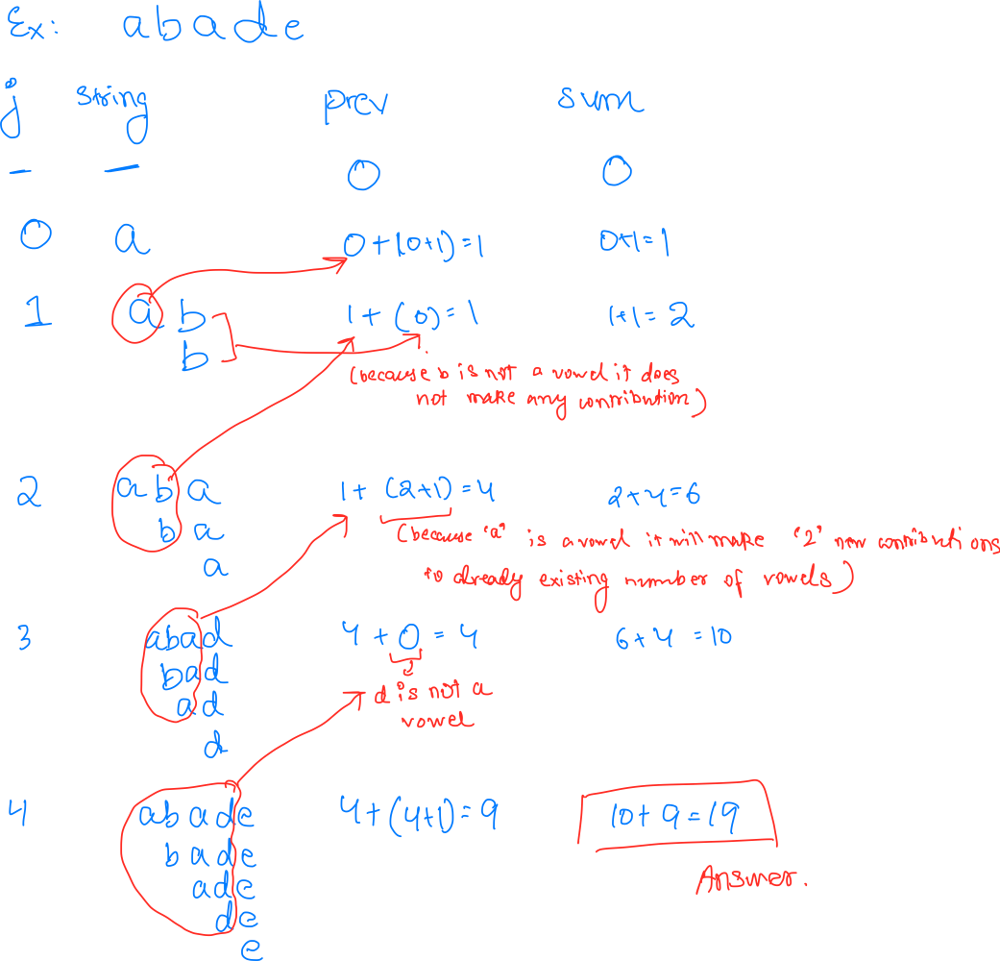 Ex: abade
j string prev sum
— — 0 0
0 a 0+(0+1)=1 0+1=1
1 ab 1+(0)=1 1+1=2
b
(because b is not a vowel it does
not make any contribution)
2 aba 1+(2+1)=4 2+4=6
ba
(because 'a' is a vowel it will make '2' new contributions
a
to already existing number of vowels)
3 abad 4+0=4 6+4=10
bad
d is not a
ad
vowel
d
4 abade 4+(4+1)=9 10+9=19
bade
ade
Answer.
de
e